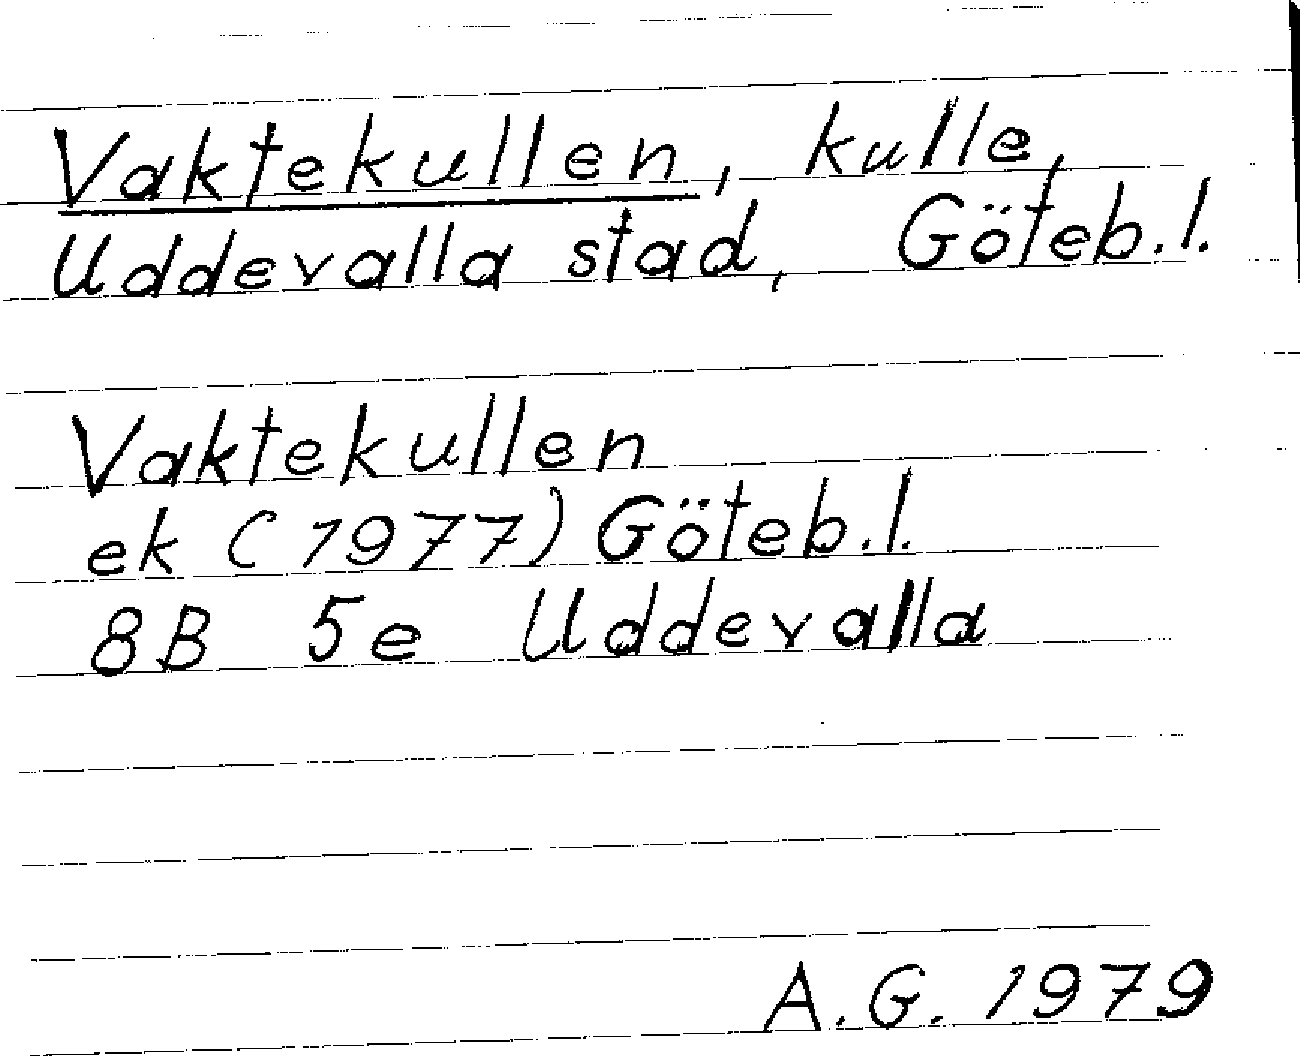 Vaktekullen, kulle,
Uddevalla stad, Göteb.l.
Vaktekullen
ek (1977) Göteb.l.
8B 5e Uddevalla
A.G. 1979